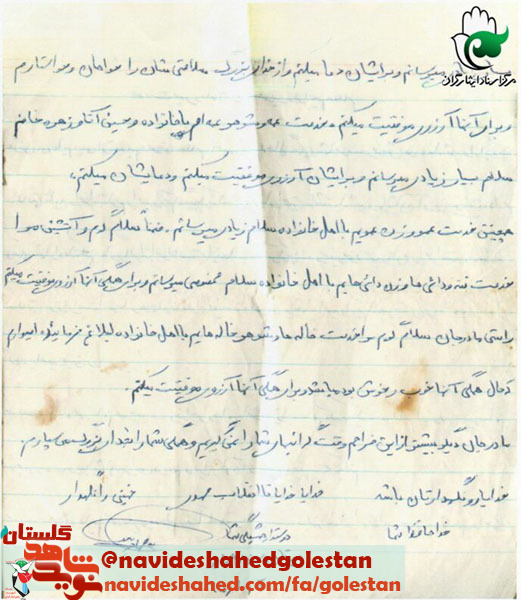 مرکز اسناد ایثارگران
میرسانم و برایشان دعا میکنم و از خدای بزرگ سلامتی شان را خواهان و خواستارم
و برای آنها آرزوی موفقیت میکنم. خدمت عمه و شوهر عمه ام با خانواده و حسین آقا و زهره خانم
سلام بسیار زیادی میرسانم و برایشان آرزوی موفقیت میکنم و دعایشان میکنم.
همچنین خدمت عمو و زن عمویم با اهل خانواده سلام زیادی میرسانم. ضمناً سلام گرم و آتشین مرا
خدمت ننه و دائی ها و زن دائی هایم با اهل خانواده سلام مخصوصی میرسانم و برای همگی آنها آرزوی موفقیت میکنم
راستی مادرجان سلام گرم مرا خدمت خاله ها و شوهر خاله هایم با اهل خانواده ابلاغ فرمائید امیدوارم
که حال همگی آنها خوب و خوش بوده باشد و برای همگی آنها آرزوی موفقیت میکنم.
مادرجان دیگر بیشتر از این مزاحم وقت گرانبهای شما نمی گیرم و همگی شما را بخدای بزرگ می سپارم.
خدا یار و نگهدارتان باشد خدایا خدایا تا انقلاب مهدی خمینی را نگهدار
خداحافظ شما دوستدار همیشگی شما
گلستان
نوید شاهد
@navideshahedgolestan
navideshahed.com/fa/golestan